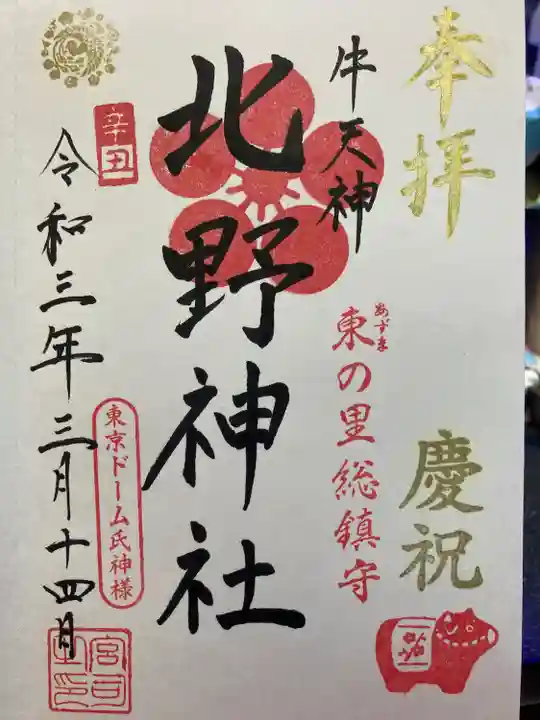 奉拝
慶祝
牛天神
あずま
東の里総鎮守
北野神社
東京ドーム氏神様
辛丑
令和三年三月十四日
宮司之印